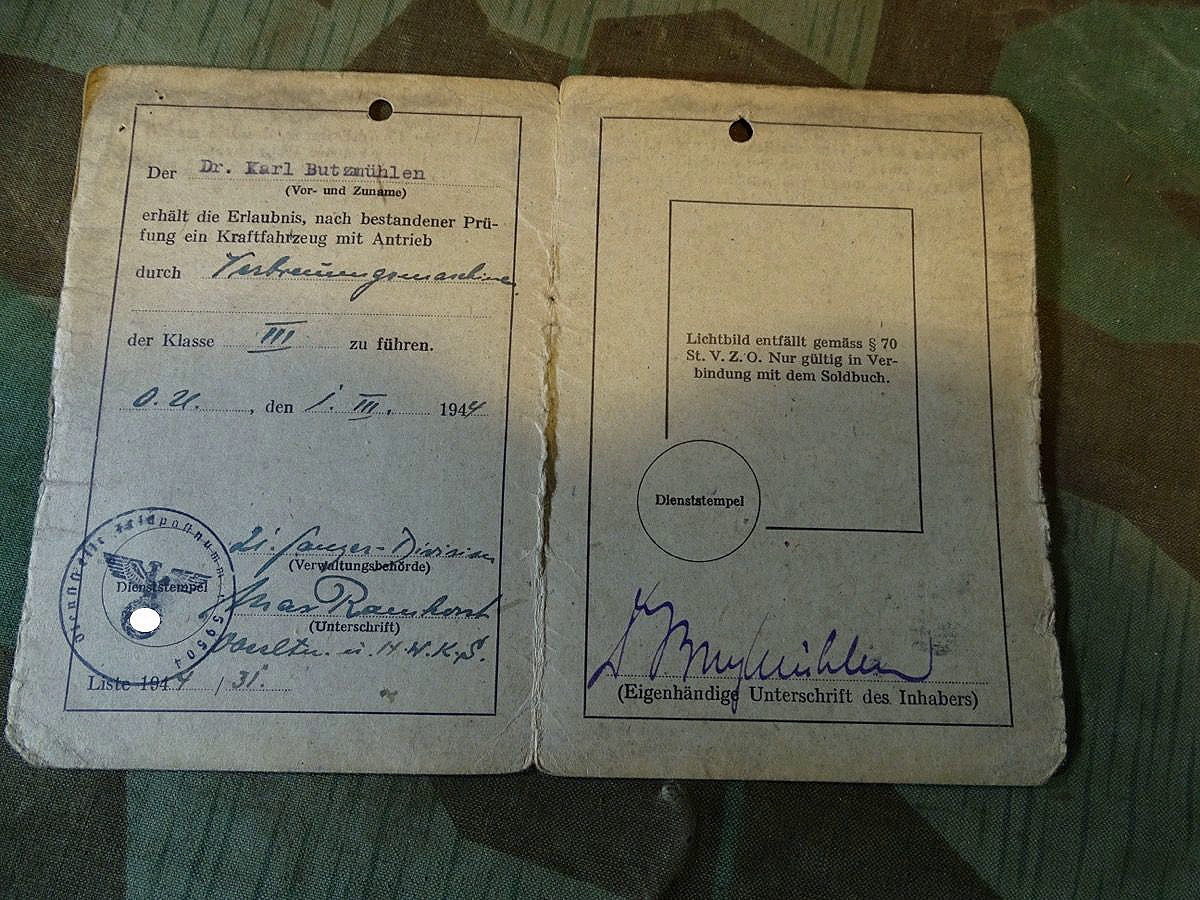 Der Dr. Karl Butzmühlen
(Vor- und Zuname)
erhält die Erlaubnis, nach bestandener Prü-
fung ein Kraftfahrzeug mit Antrieb
durch Verbrennungsmaschine
der Klasse III zu führen.
O.U., den 1. III. 1944
Dienststelle Feldpostnumm 59504
Dienststempel
21. Panzer-Division
(Verwaltungsbehörde)
(Unterschrift)
Oberltn. u.
Liste 1944 / 31.
Lichtbild entfällt gemäss § 70
St. V. Z. O. Nur gültig in Ver-
bindung mit dem Soldbuch.
Dienststempel
Butzmühlen
(Eigenhändige Unterschrift des Inhabers)